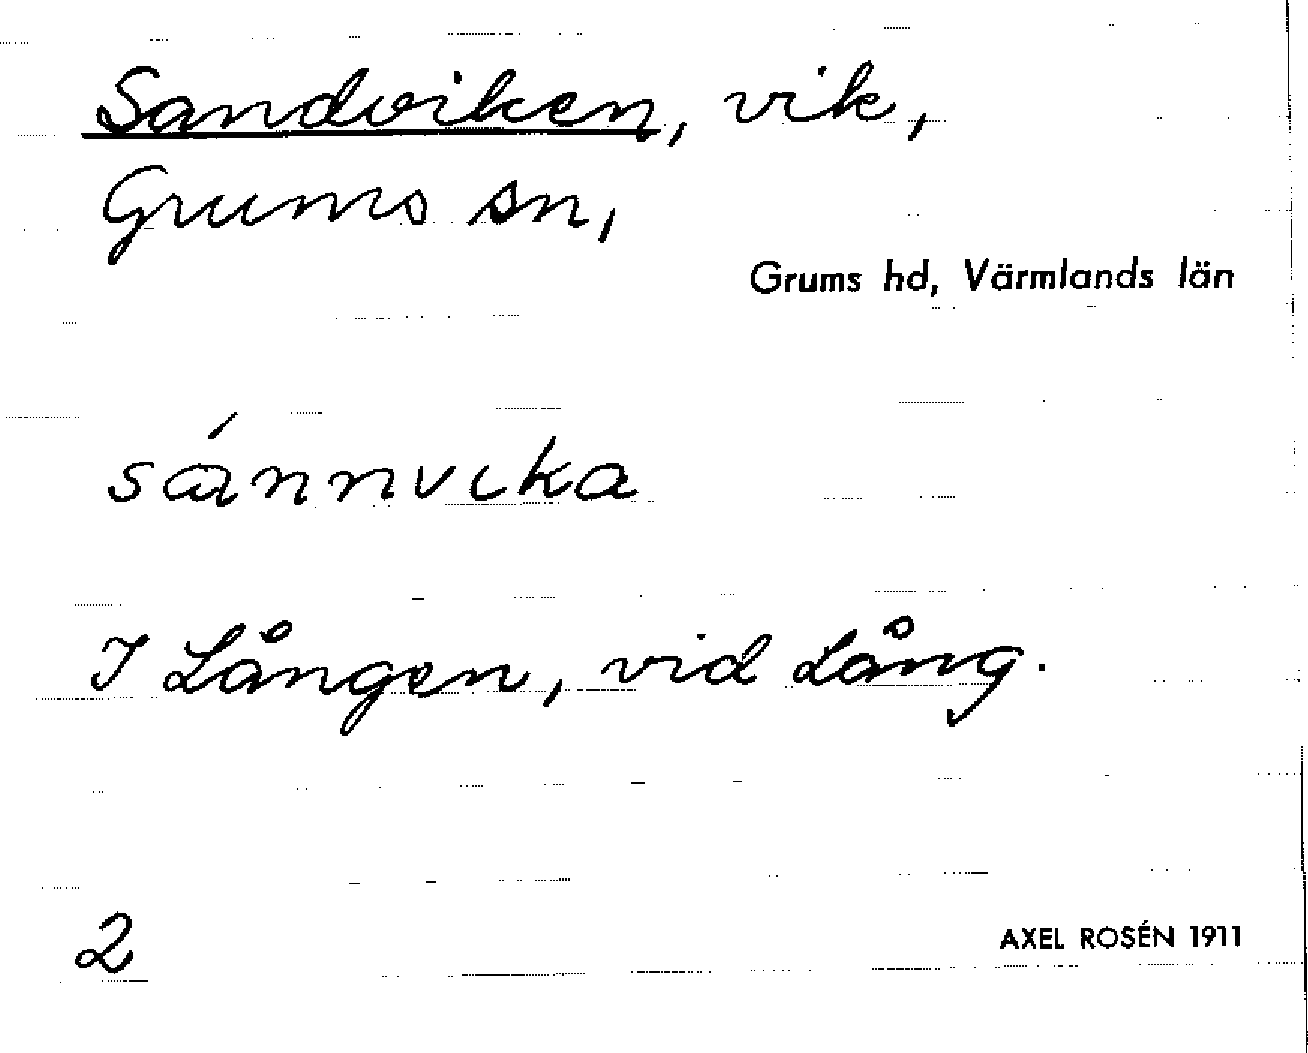 Sandviken, vik,
Grums sn,
Grums hd, Värmlands län
sánnvika
I Lången, vid Lång.
2
AXEL ROSÉN 1911